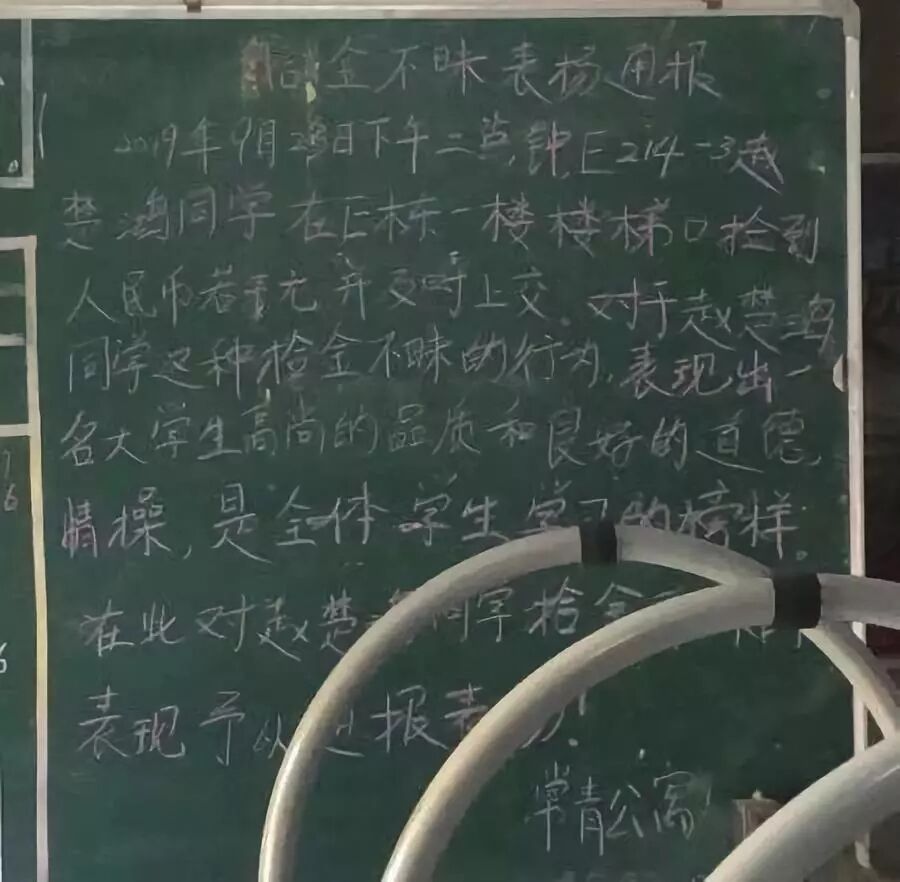 拾金不昧表扬通报
2019年9月28日下午二点钟,E214-3赵
楚鸿同学在E栋一楼楼梯口捡到
人民币若干元并及时上交。对于赵楚鸿
同学这种捡金不昧的行为,表现出一
名大学生高尚的品质和良好的道德
情操,是全体学生学习的榜样。
在此对赵楚 同学拾金
表现予以通报表扬!
常青公寓